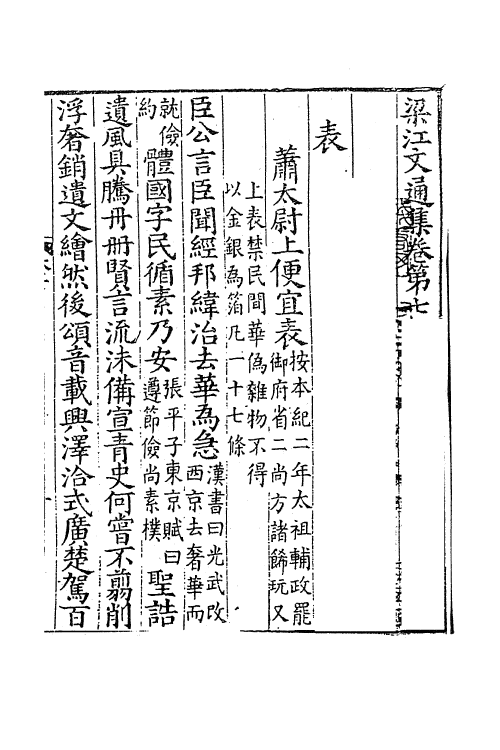 梁江文通集卷第七
表
蕭太尉上便宜表按本紀二年太祖輔政罷
御府省二尚方諸餙玩又
上表禁民間華偽雜物不得
以金銀為箔凡一十七條
臣公言臣聞經邦緯治去華為急漢書曰光武改
西京去奢華而
就儉
約體國字民循素乃安張平子東京賦曰
遵節儉尚素樸聖誥
遺風具騰丹冊賢言流沬備宣青史何嘗不翦削
浮奢銷遺文繪然後頌音載興澤洽式廣楚駕百